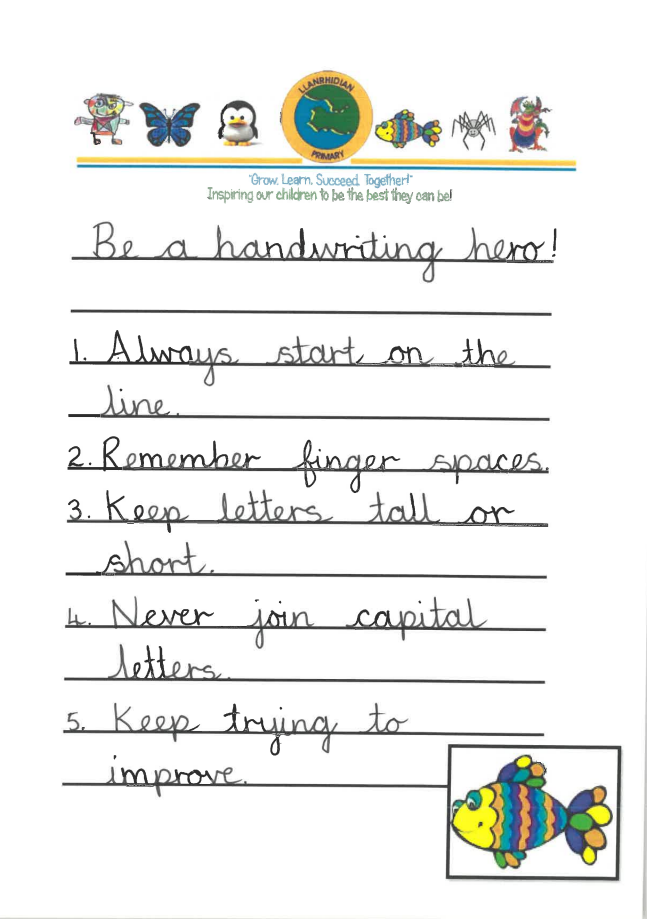 LLANRHIDIAN
PRIMARY
"Grow, Learn, Succeed, Together!"
Inspiring our children to be the best they can be!
Be a handwriting hero!
1. Always start on the
line.
2. Remember finger spaces.
3. Keep letters tall or
short.
4. Never join capital
letters.
5. Keep trying to
improve.